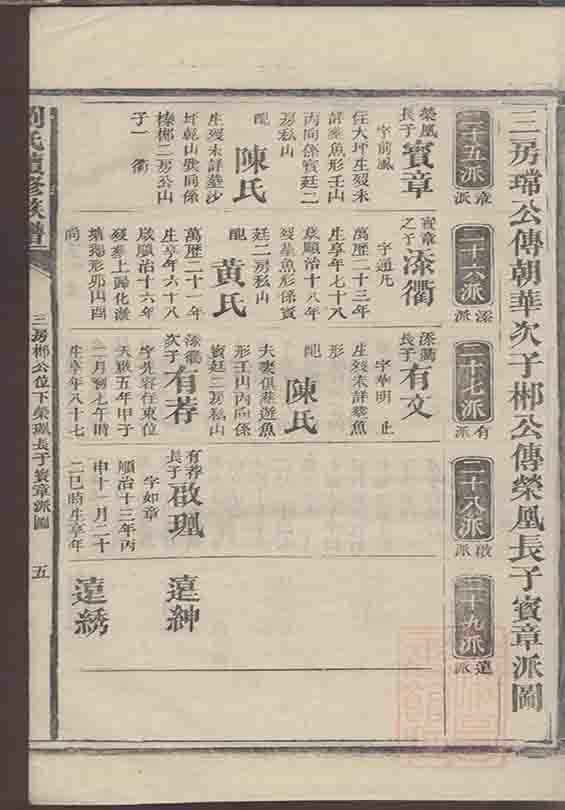 三房瑺公傳朝華次子郴公傳榮鳳長子賓章派圖
二十五派
章派
二十六派
深派
二十七派
有派
二十八派
啟派
二十九派
遠派
榮鳳長子
賓章
字前風
住大坪生歿未
詳葬魚形壬山
丙向係賓廷二
房私山
配
陳氏
生歿未詳葬沙
坪乾山巽向係
榛郴二房公山
子一 衢
賓章之子
深衢
字通凡
萬歷二十三年
生享年七十八
歲順治十八年
歿葬魚形係賓
廷二房私山
配
黃氏
萬歷二十一年
生享年六十八
歲順治十六年
歿鄉上歸化崖
塘獨形卯山酉
向
深衢長子
有文
字華明 止
生歿未詳葬魚
形
配
陳氏
夫妻俱葬遊魚
形壬山丙向係
賓廷二房私山
深衢次子
有荐
字先容往東位
天啟五年甲子
二月初七午時
生享年八十七
有荐長子
啟瑥
字如章
順治十三年丙
申十一月二十
二巳時生享年
遠紳
遠綉
劉氏續修族譜
三房郴公位下榮鳳長子賓章派圖
五